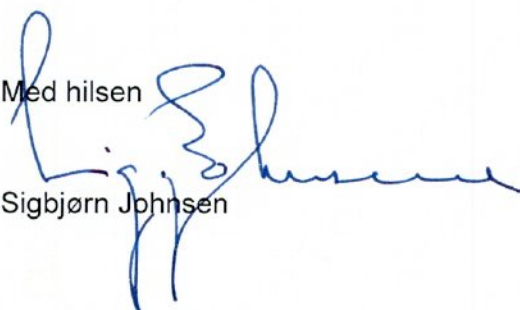 Med hilsen
Sigbjørn Johnsen